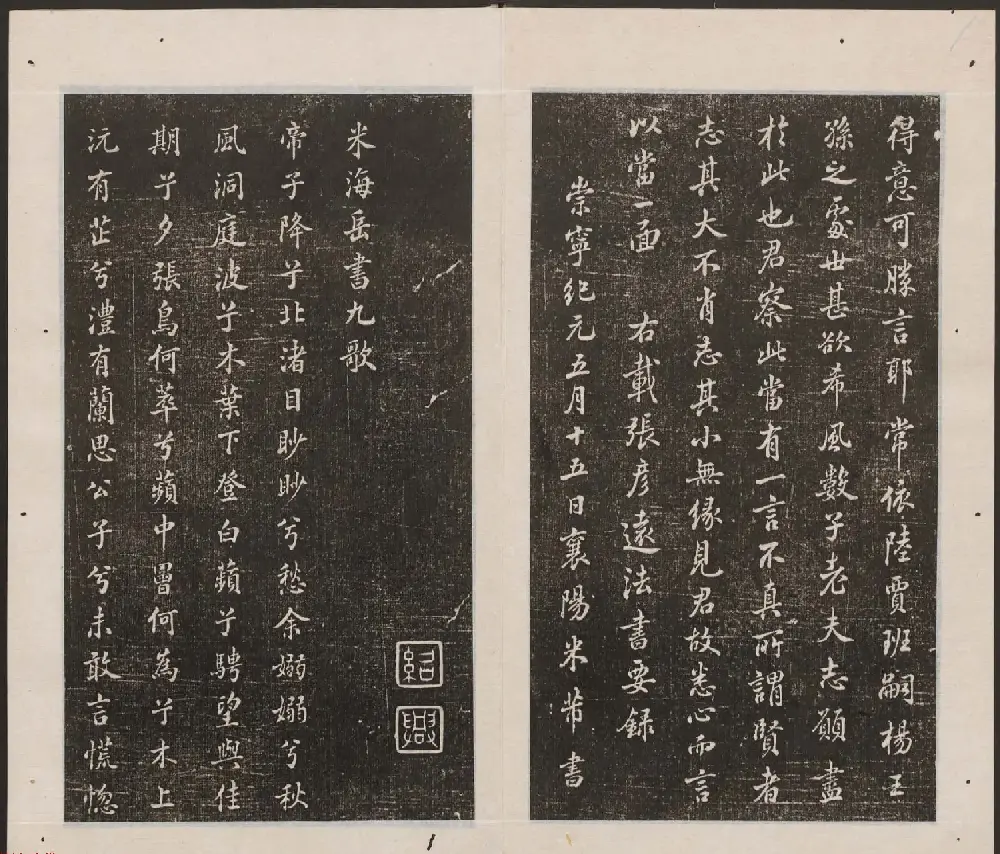 得意可勝言耶常依陸賈班嗣楊王
孫之處世甚欲希風數子老夫志願盡
於此也君察此當有一言不真所謂賢者
志其大不肖志其小無緣見君故悉心而言
以當一面 右載張彦遠法書要録
崇寧紀元五月十五日襄陽米芾書
紹興
米海岳書九歌
帝子降兮北渚目眇眇兮愁余嫋嫋兮秋
風洞庭波兮木葉下登白蘋兮騁望與佳
期兮夕張鳥何萃兮蘋中罾何為兮木上
沅有芷兮澧有蘭思公子兮未敢言慌惚